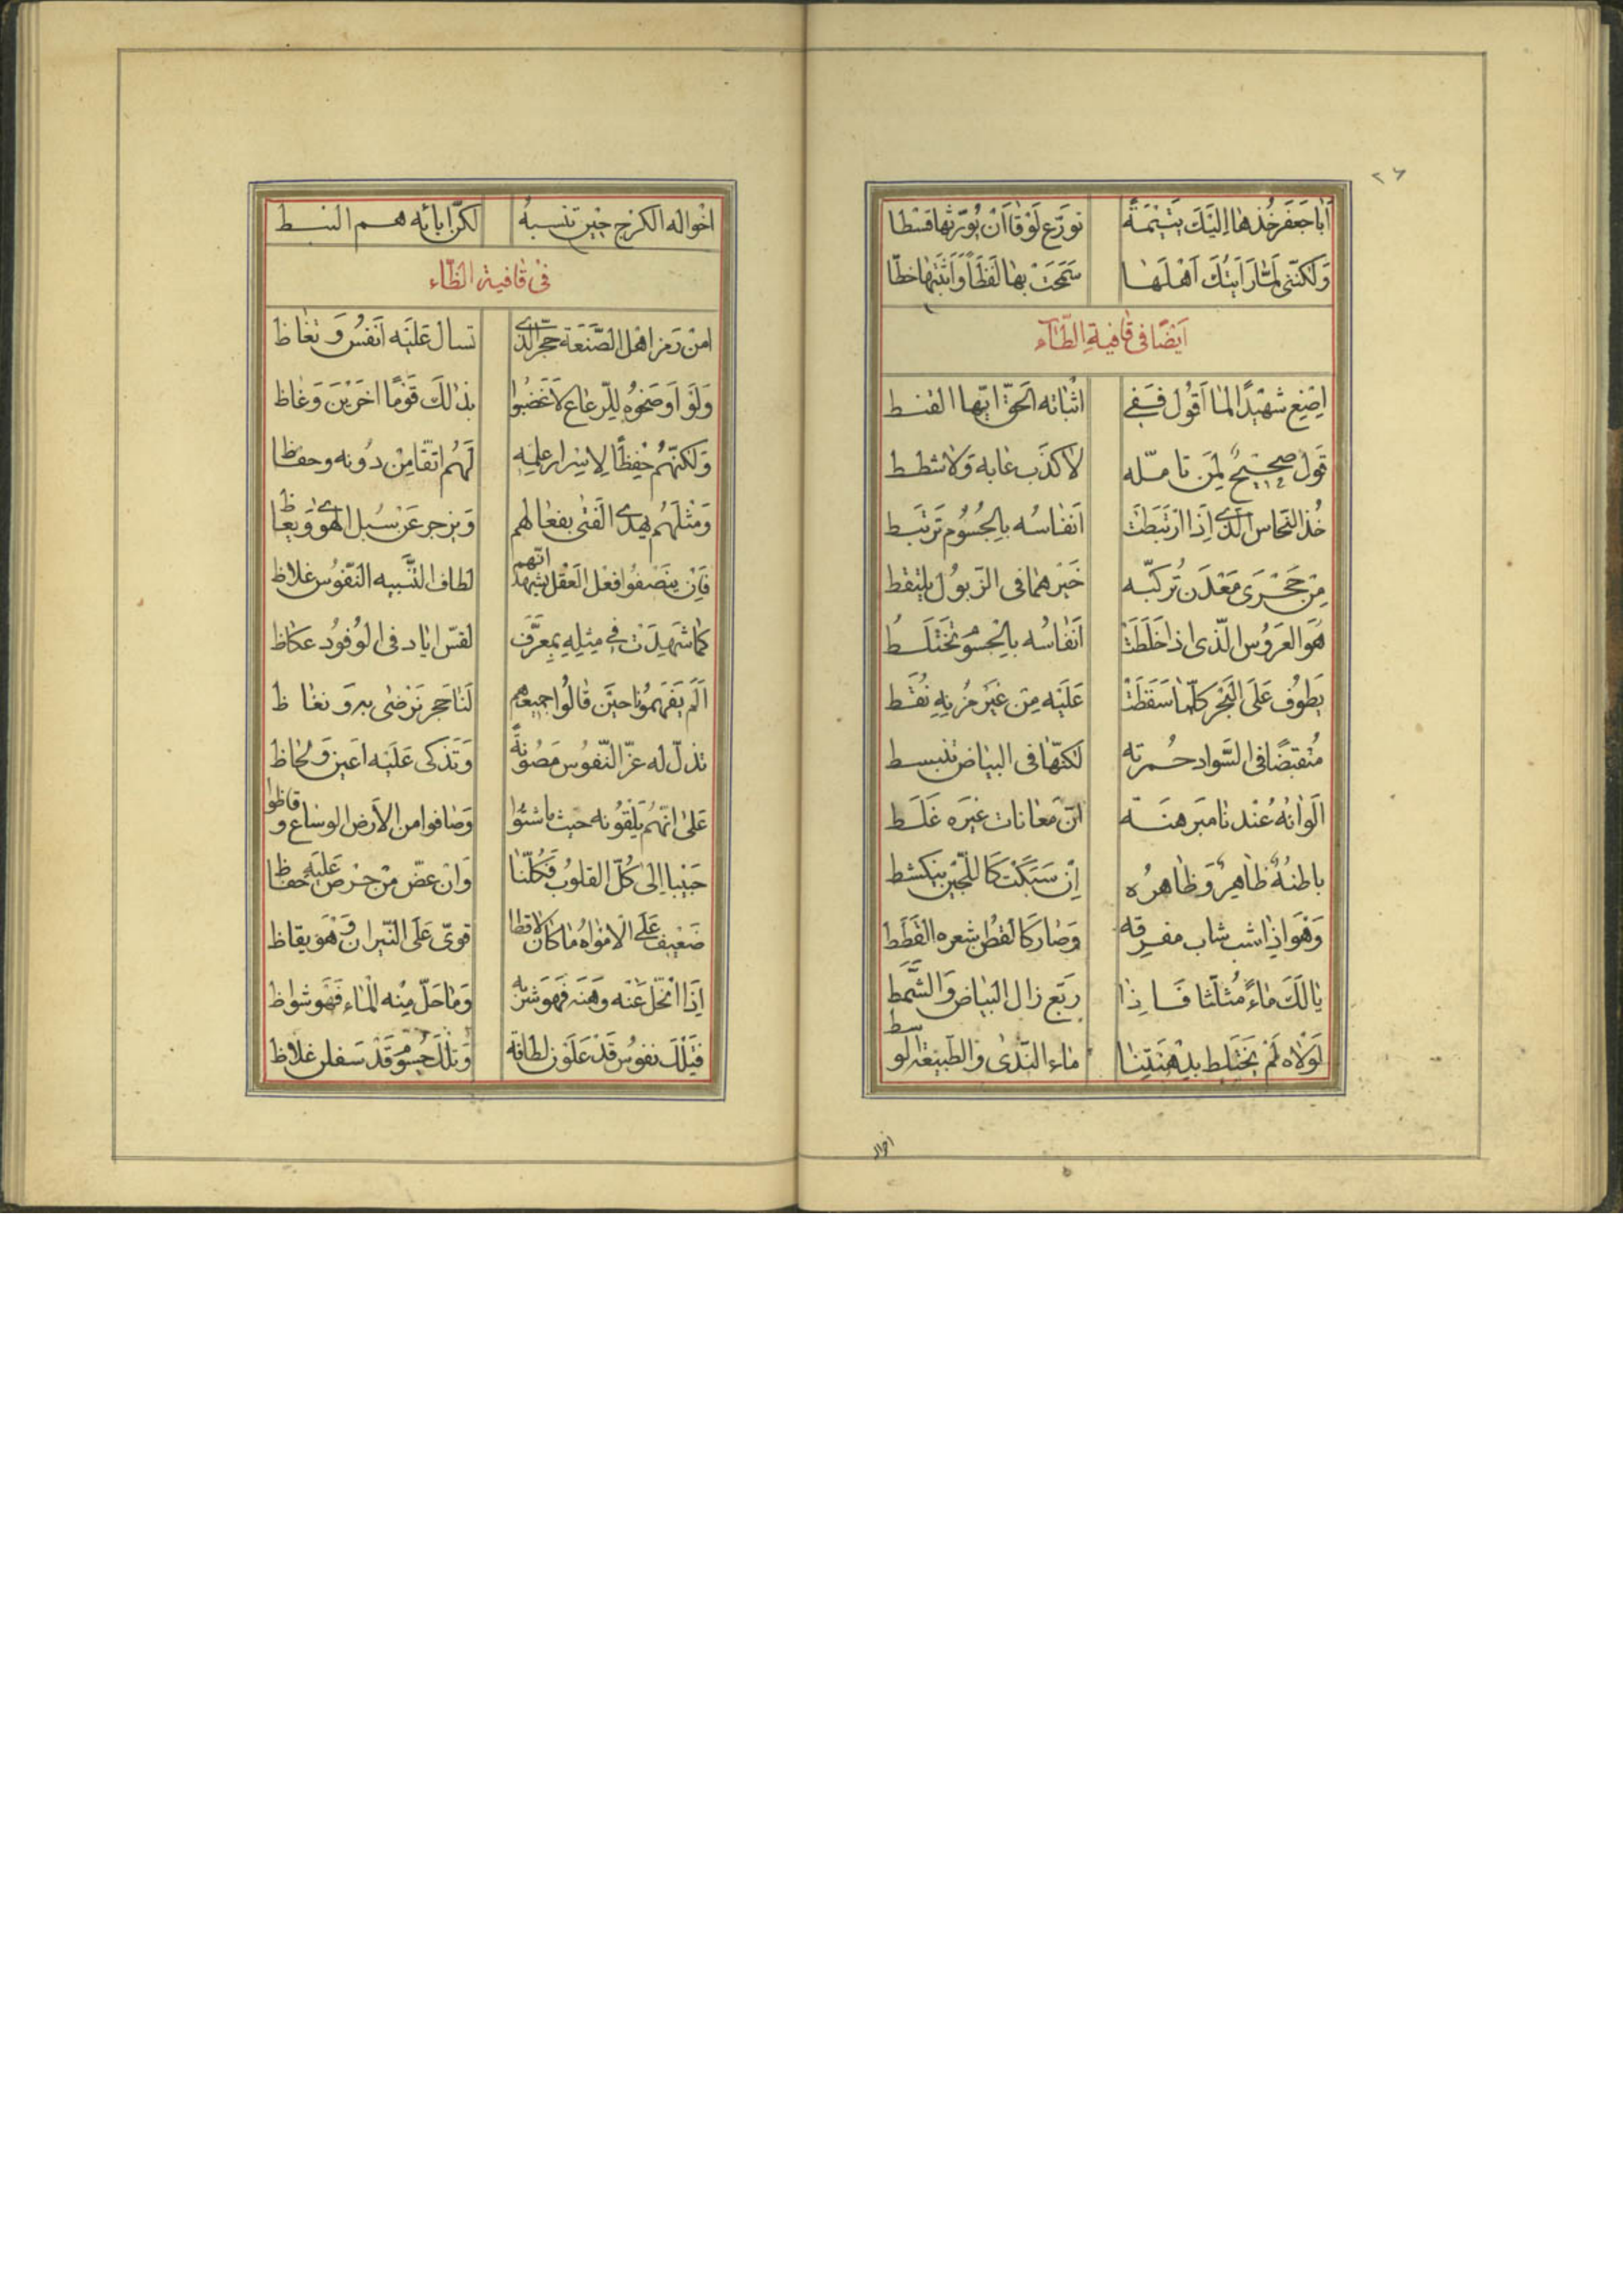 ٢٦
اَبا جَعْفَر خُذها اِلَيْكَ يَتيْمَةً تورّع لَوْقا اَنْ يُوَرّثها قسْطا
وَلكنّنى لمّا رَاَيتُكَ اَهْلَها سَمَحَتْ بها لَفظاً وَاَثبَتها خطّا
اَيضًا فى قافيةِ الطّاء
اصْنِع شهيْدًا لما اَقُول فَفى اثباته الحقّ ايّها القنط
قَول صحيحٌ لمن تامّله لا كذب عابه ولا شطط
خُذ النحاس الّذى اِذَا ارْتَبَطَتْ اَنفاسُه بالجُسُوم تَرتبَط
مِن حَجْرَى مَعْدَن تُركبّه خَيْرهما فى الزبول يلتقط
هُوَ العَرُوس الّذى اذا خَلَطَتْ اَنفاسُه بالجسُوم تختَلَطُ
يَطوُف عَلَى البَحْر كلّما سَقَطَتْ عَلَيْه مِن غَير مُزنِهِ نُقَط
مُنقبضًا فى السَّواد حُمرته لكنّها فى البياض تنبسط
اَلوانهُ عُنْدنا مبَرهنَة انّ مَعانات غيَره غَلَط
باطنهُ ظاهِرٌ وَظاهرُه اِنْ سَبَكْت كَاللّجَيْن ينكشط
وَهْوَ اِذا شب شاب مفرقه وَصارَ كالقطن شعره القَطَط
يا لَكَ ماءً مُثلّثا فَاِذا ربَع زال البَياض وَالشَّمَط
لَوْلاه لَمْ يَختَلِط بدِهنَتِنا ماء النّدى والطّبيعة الوسط
اخوال
اخْواله الكرْج حيْن تنسبهُ لكنّ ابائه هم النبط
فى قافية الظّاء
امنْ رَمز اهْل الصَّنعَة حجر الذى تسال عَلَيْه اَنفُس وَتغاظ
وَلَوْ اَوضَحوُه للرّعاع لاَغضبُوا بذالك قَومًا اخَرْينَ وَغاظ
وَلكنّهُم حِفِظًا لاِسْرار علمِه لَهُم اتّقا مِنْ دُونه وحفاظ
وَمثلَهُم يهدى الفَتى بفعالهم وَيزجر عَنْ سُبل الهوٰى وَيعاظ
فَاِن ينَصْفوُا فعْل العَقْل يشهد انّهم لطاف التّشبيه النّفوُس غلاظ
كما شَهِدَتْ فِي مثلِهِ بمعرَّفَ لقسّ اياد فى الوُفوُد عكاظ
اَلَم يَفهَموُنا حيَن قالُوا جميعهم لَنا حَجر نَرْضى به وَنغاظ
تذلّ له عزّ النّفوُس مَصُونةً وَتَذكى عَلَيْه اعَين وَلحاظ
عَلى انّهُم يَلقوُنه حيث ما شتّوا وَصافوا من الاَرض الوساع وقاظوا
حَبيْبا اِلى كُلّ القلوُب فَكُلّنا وَان عضّ مِنْ حرْص عَلَيه حفاظ
ضَعْيف عَلَى الامْواهُ ماكان لاقطا قوىّ عَلَى النّيران وَهْوَ يقاظ
اِذَا انْحَلّ عَنْه وَهَنه فَهوَ شربّه وَما حَلّ مِنْه الماء فَهْوَ شواظ
فَتِلك نفوُس قَدْ عَلَون لطافة وَتلك جُسُوم قَدْ سَفلن غلاظ